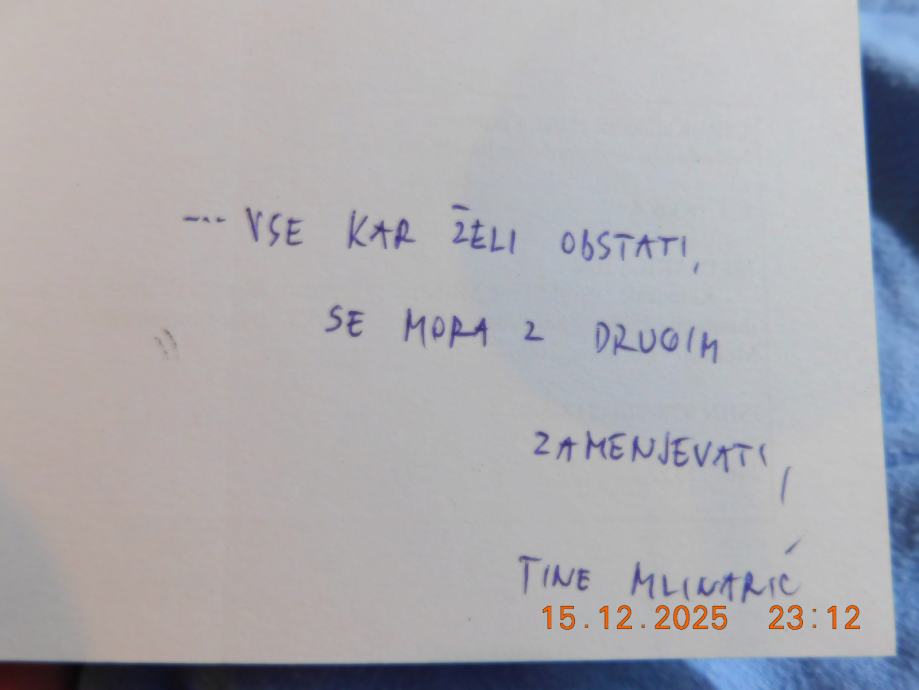 --- VSE KAR ŽELI OBSTATI,
SE MORA Z DRUGIM
ZAMENJEVATI,
TINE MLINARIĆ
15.12.2025 23:12